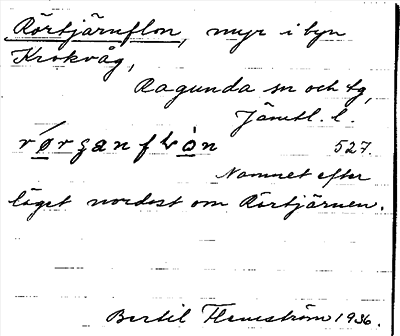 Rörtjärnflon, myr i byn
Krokvåg,
Ragunda sn och tg,
Jämtl. l.
527.
Namnet efter
läget nordost om Rörtjärnen.
Bertil Flemström 1936.